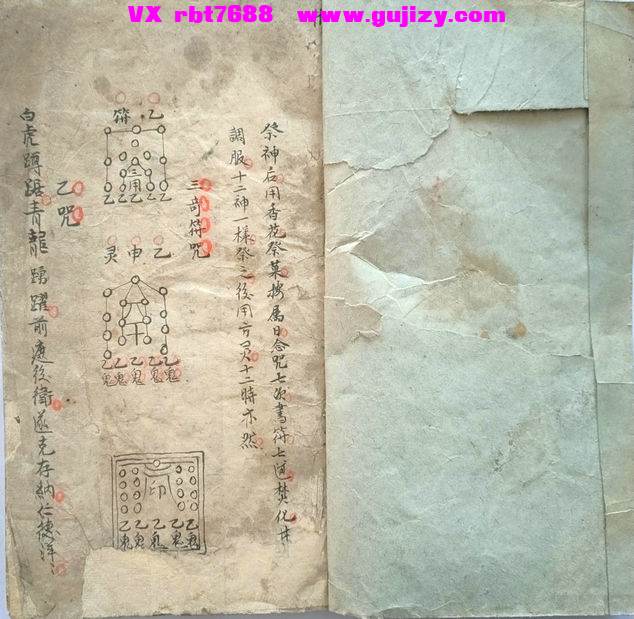 VX rbt7688 www.gujizy.com
祭神后用香花祭菓按属日念咒七次書符七道焚化井
調服十二神一樣祭之後用方灵十二時亦然
三奇符咒
乙符
三用
乙乙乙乙乙
乙申灵
六十
乙鬼乙鬼乙鬼乙鬼乙鬼
印
乙鬼乙鬼乙鬼乙鬼乙鬼
乙咒
白虎蹲踞青龍踴躍前遮後衛遂克存納仁德洋